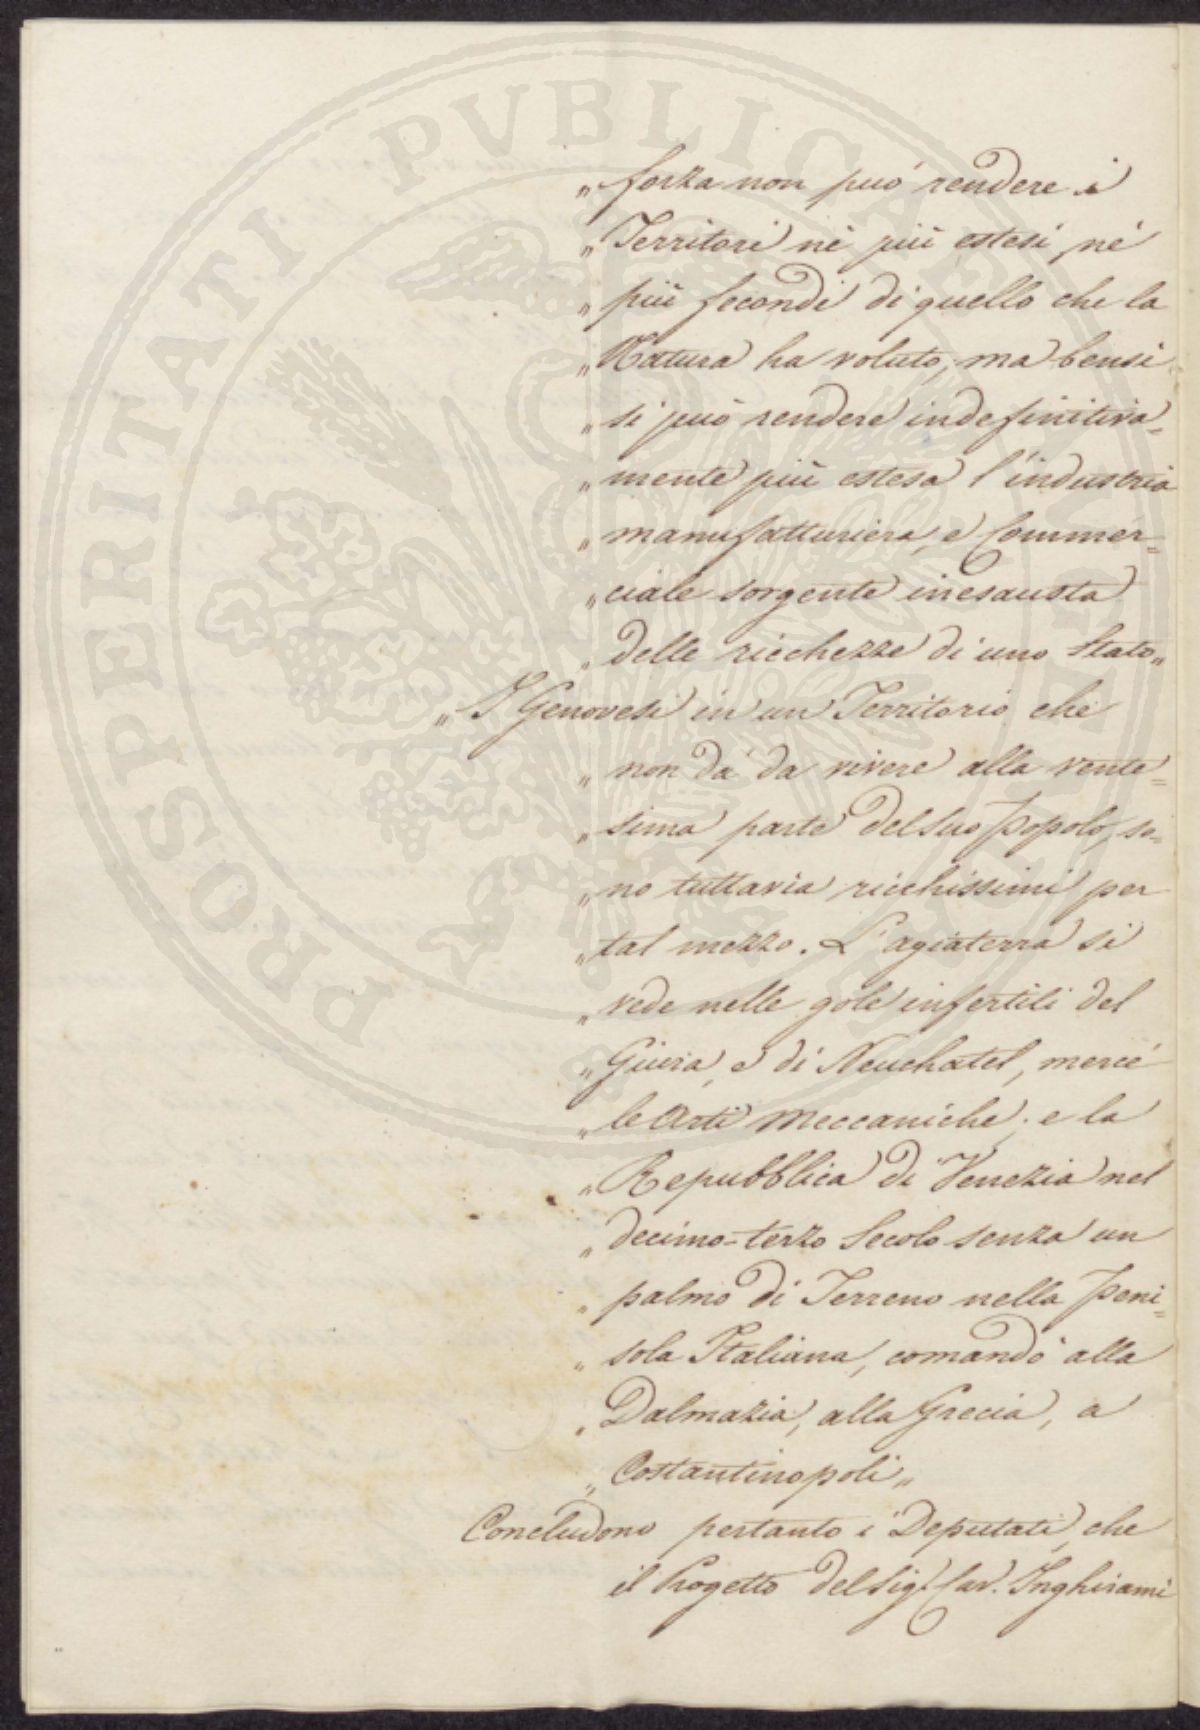 „ forza non può rendere i
„ Territori nè più estesi, nè
„ più fecondi di quello che la
„ Natura ha voluto, ma bensì
„ si può rendere indefinitiva=
„ mente più estesa l'industria
„ manufatturiera, e Commer=
„ ciale sorgente inesausta
„ delle ricchezze di uno Stato„
„ I Genovesi in un Territorio che
„ non dà da vivere alla vente=
„ sima parte del suo Popolo, so=
„ no tuttavia ricchissimi per
„ tal mezzo. L'agiatezza si
„ vede nelle gole infertili del
„ Giura, e di Neuchatel, mercè
„ le Arti Meccaniche; e la
„ Repubblica di Venezia nel
„ decimo-terzo Secolo senza un
„ palmo di Terreno nella Peni=
„ sola Italiana, comandò alla
„ Dalmazia, alla Grecia, a
„ Costantinopoli„
Concludono pertanto i Deputati, che
il Progetto del Sig. Cav. Inghirami
PROSPERITATI PVBLICAE